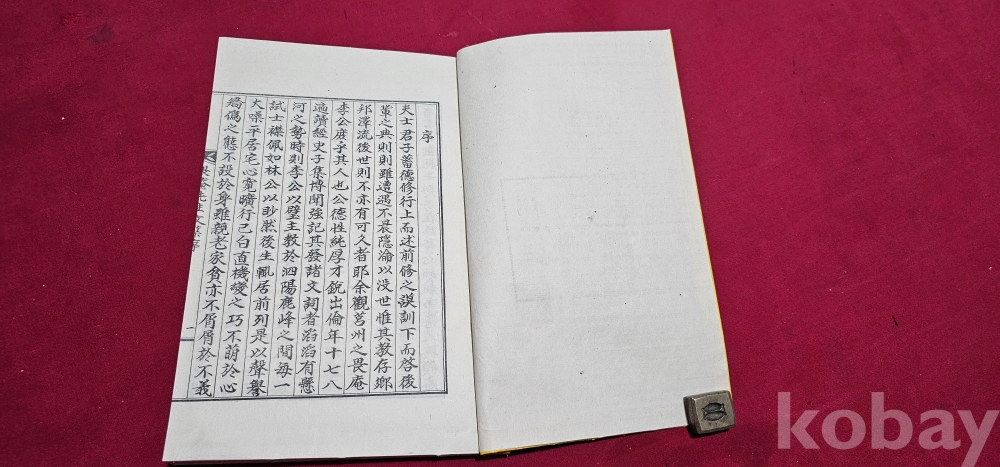 序
夫士君子蓄德修行上而述前修之謨訓下而啓後
輩之典則則雖遭遇不晨隱淪以没世惟其敎存鄉
邦澤流後世則不亦有可久者耶余觀莒州之畏庵
李公度乎其人也公德性純厚才銳出倫年十七八
遍讀經史子集博聞強記其發諸文詞者滔滔有懸
河之勢時則李公以璧主敎於泗陽鹿峰之間每一
試士襟佩如林公以眇然後生輒居前列是以聲譽
大噪平居宅心寬曠行己白直機變之巧不萌於心
矯僞之態不設於身雖親老家貧亦不屑屑於不義
畏庵先生文集序
一
kobay